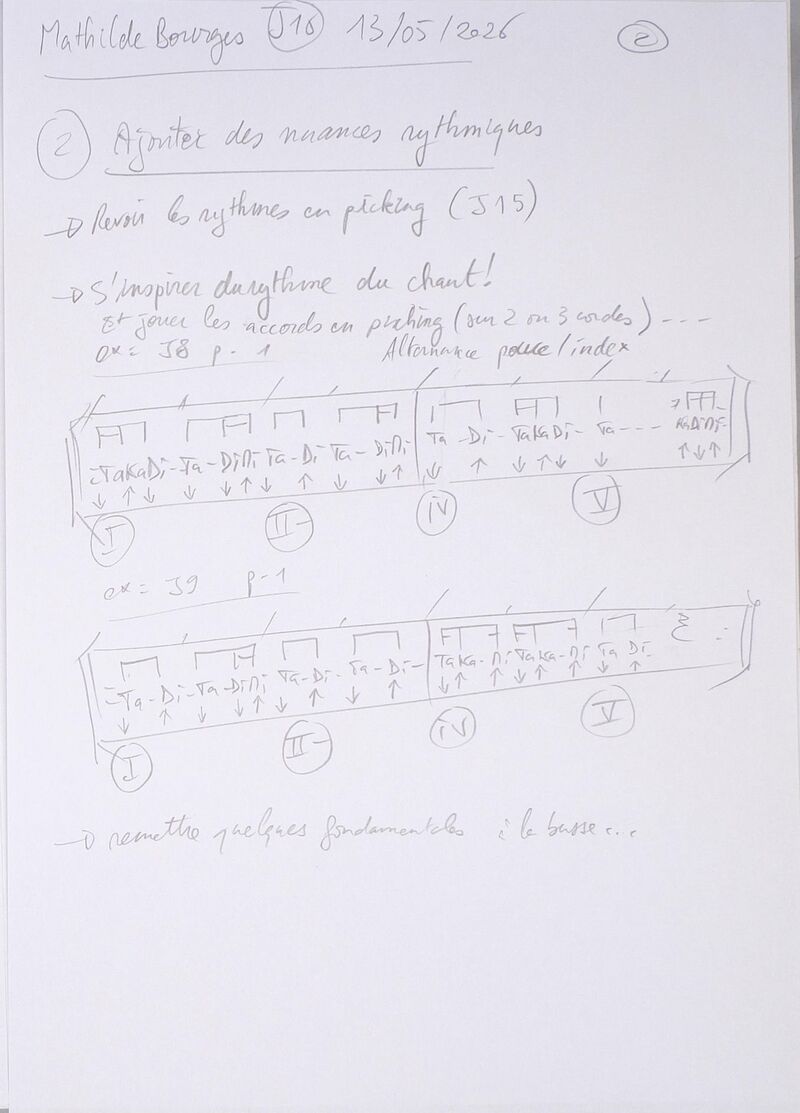 Mathilde Bourges J16 13/05/2026 2
2 Ajouter des nuances rythmiques
→ Revoir les rythmes en picking (J15)
→ S'inspirer du rythme du chant!
Et jouer les accords en picking (sur 2 ou 3 cordes) ---
ex = J8 p-1 Alternance pouce/index
TaKaDi-Ta-DiMi Ta-Di Ta-DiMi Ta-Di-TaKaDi-Ta--- KaDiMi-
↓↑↓ ↓ ↓↑↓ ↑ ↓ ↓↑ ↓ ↑ ↓ ↑↓ ↓ ↑↓↑
I II- IV V
ex = J9 p-1
Ta-Di-Ta-DiMi Ta-Di-Ta-Di- TaKa-Mi TaKa-Mi Ta Di-
↓ ↑ ↓ ↓↑ ↓ ↑ ↓ ↑ ↓↑ ↑ ↓↑ ↑ ↓ ↑
I II- IV V
→ remettre quelques fondamentales à la basse...